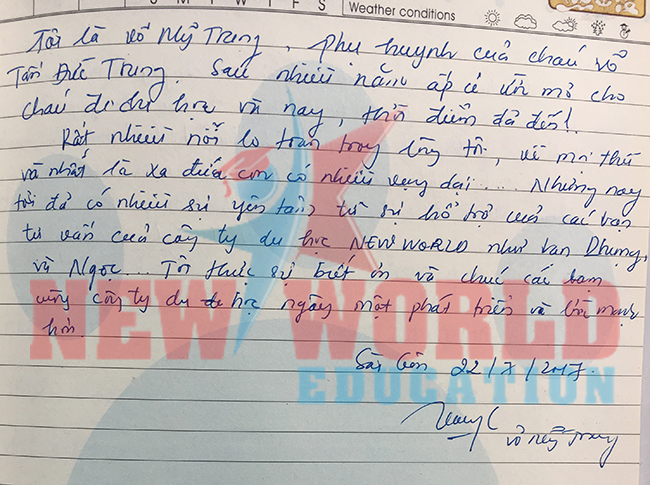 S M T W T F S
Weather conditions
Tôi là Võ Mỹ Trung, phụ huynh của cháu Võ
Tấn Đức Trung. Sau nhiều năm ấp ủ ước mơ cho
cháu đi du học và nay, thời điểm đã đến!
Rất nhiều nỗi lo toan trong lòng tôi, về mọi thứ
và nhất là xa đứa con có nhiều vụng dại.... Nhưng nay
tôi đã có nhiều sự yên tâm từ sự hổ trợ của các bạn
tư vấn của công ty du học NEW WORLD như bạn Dhung,
và Ngọc... Tôi thực sự biết ơn và chúc các bạn
cùng công ty du học ngày một phát triển và lớn mạnh
hơn.
NEW WORLD
EDUCATION
Sài Gòn 22/7/2017
Võ Mỹ Trung